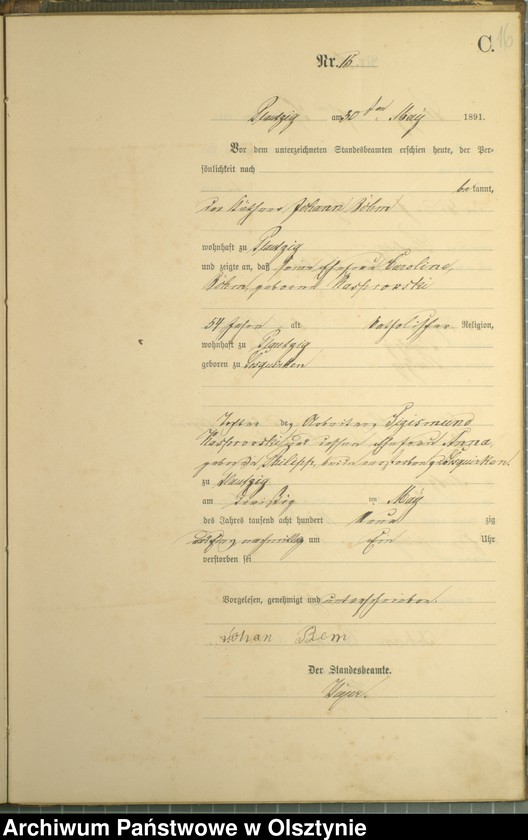 C. 16
Nr. 16
Plautzig am 30ten May 1891.
Vor dem unterzeichneten Standesbeamten erschien heute, der Per-
sönlichkeit nach
bekannt,
der Käthner Johann Böhm
wohnhaft zu Plautzig
und zeigte an, daß seine Ehefrau Caroline,
Böhm, geborene Kasprovski
54 Jahre alt Katholischer Religion,
wohnhaft zu Plautzig
geboren zu
Tochter des Arbeiters Sigismund
Kasprovski und dessen Ehefrau Anna,
geborene beide verstorben
zu Plautzig
am dreißig ten May
des Jahres tausend acht hundert Neun zig
und Ein nachmittag um Ein Uhr
verstorben sei
Vorgelesen, genehmigt und unterschrieben.
Johan Bem
Der Standesbeamte.
Archiwum Państwowe w Olsztynie